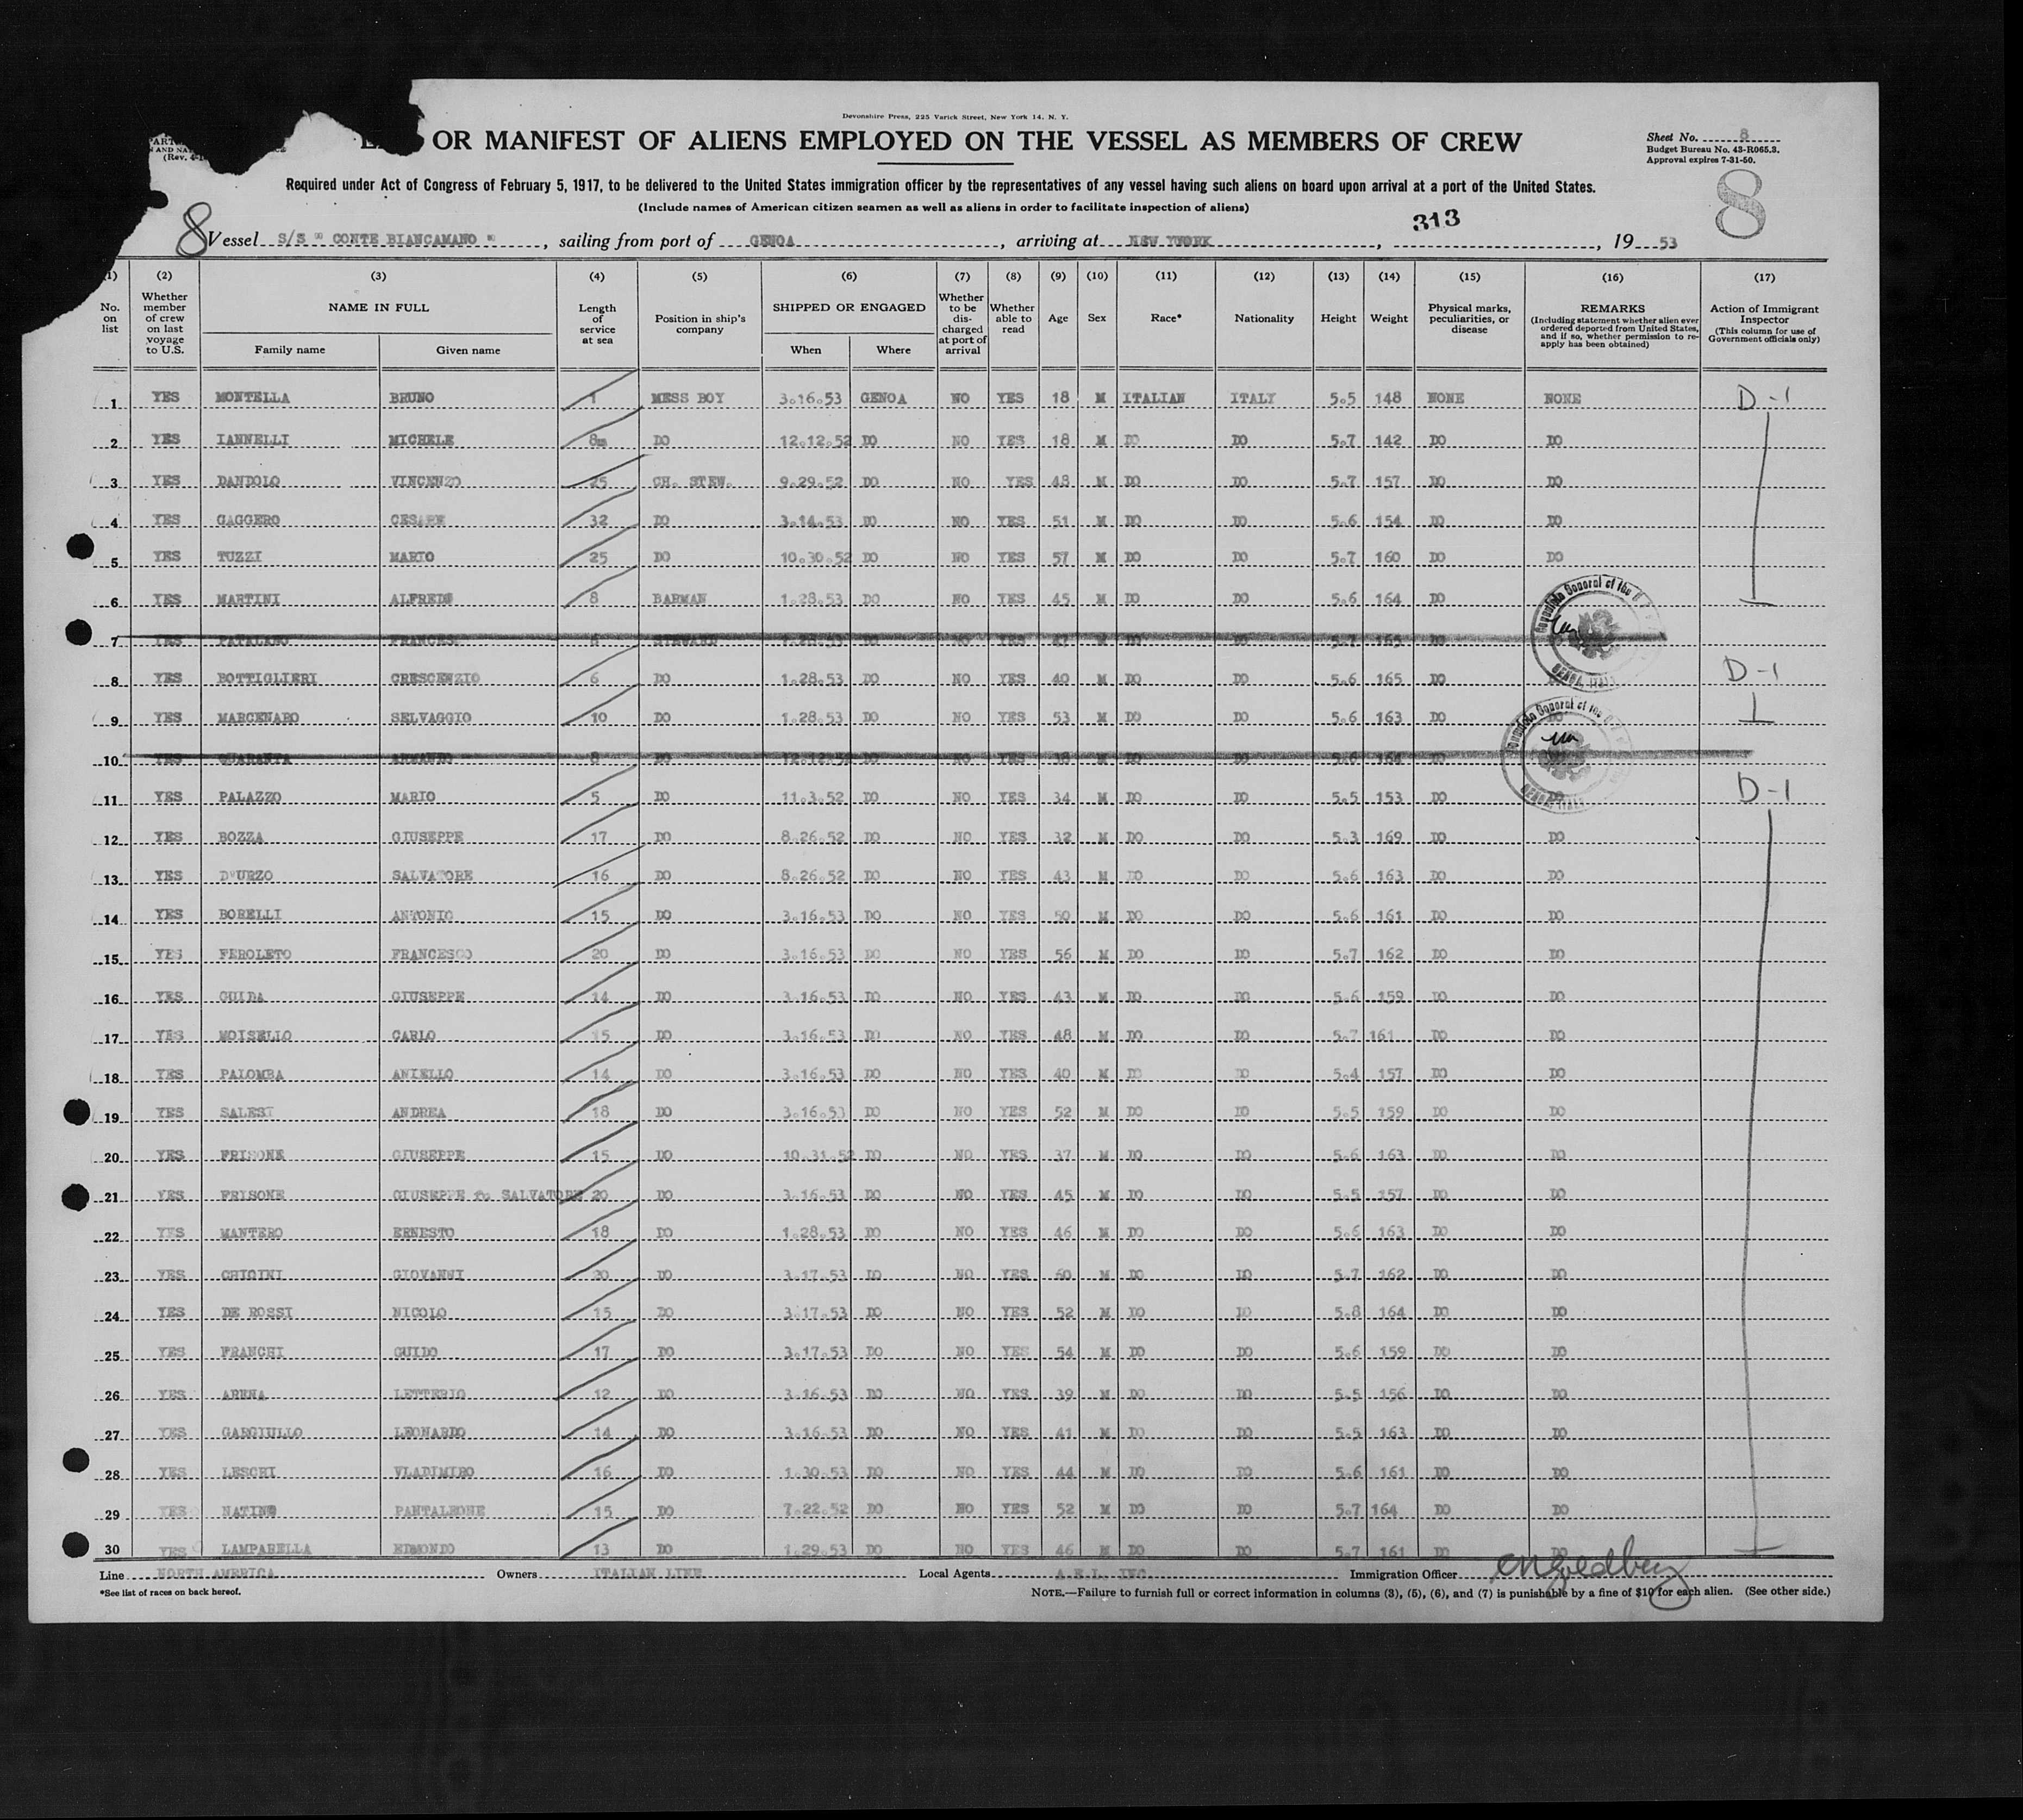 Devonshire Press, 225 Varick Street, New York 14, N. Y.
OR MANIFEST OF ALIENS EMPLOYED ON THE VESSEL AS MEMBERS OF CREW
Sheet No. 8
Budget Bureau No. 43-R065.3.
Approval expires 7-31-50.
(Rev.
Required under Act of Congress of February 5, 1917, to be delivered to the United States immigration officer by the representatives of any vessel having such aliens on board upon arrival at a port of the United States.
(Include names of American citizen seamen as well as aliens in order to facilitate inspection of aliens)
313
8
8 Vessel S/S " CONTE BIANCAMANO ", sailing from port of GENOA, arriving at NEW YWORK, 19 53
(1) (2) (3) (4) (5) (6) (7) (8) (9) (10) (11) (12) (13) (14) (15) (16) (17)
No. on list Whether member of crew on last voyage to U.S. NAME IN FULL Family name Given name Length of service at sea Position in ship's company SHIPPED OR ENGAGED When Where Whether to be dis-charged at port of arrival Whether able to read Age Sex Race* Nationality Height Weight Physical marks, peculiarities, or disease REMARKS (Including statement whether alien ever ordered deported from United States, and if so, whether permission to re-apply has been obtained) Action of Immigrant Inspector (This column for use of Government officials only)
1 YES MONTELLA BRUNO 1 MESS BOY 3.16.53 GENOA NO YES 18 M ITALIAN ITALY 5.5 148 NONE NONE D-1
2 YES IANNELLI MICHELE 8m DO 12.12.52 DO NO YES 18 M DO DO 5.7 142 DO DO
3 YES DANDOLO VINCENZO 25 CH. STEW. 9.29.52 DO NO YES 48 M DO DO 5.7 157 DO DO
4 YES GAGGERO CESARE 32 DO 3.14.53 DO NO YES 51 M DO DO 5.6 154 DO DO
5 YES TUZZI MARIO 25 DO 10.30.52 DO NO YES 57 M DO DO 5.7 160 DO DO
6 YES MARTINI ALFREDO 8 BARMAN 1.28.53 DO NO YES 45 M DO DO 5.6 164 DO
7 YES PATALANO FRANCESC STEWARD 1.28.53 DO NO YES 47 M DO DO 5.7 165 DO
8 YES BOTTIGLIERI CRESCENZIO 6 DO 1.28.53 DO NO YES 40 M DO DO 5.6 165 DO D-1
9 YES MARCENARO SELVAGGIO 10 DO 1.28.53 DO NO YES 53 M DO DO 5.6 163 DO DO
10 YES QUARANTA ARMANDO 8 DO 12.12.52 DO NO YES 38 M DO DO 5.6 164 DO
11 YES PALAZZO MARIO 5 DO 11.3.52 DO NO YES 34 M DO DO 5.5 153 DO DO D-1
12 YES BOZZA GIUSEPPE 17 DO 8.26.52 DO NO YES 32 M DO DO 5.3 169 DO DO
13 YES D'URZO SALVATORE 16 DO 8.26.52 DO NO YES 43 M DO DO 5.6 163 DO DO
14 YES BORELLI ANTONIO 15 DO 3.16.53 DO NO YES 50 M DO DO 5.6 161 DO DO
15 YES FEROLETO FRANCESCO 20 DO 3.16.53 DO NO YES 56 M DO DO 5.7 162 DO DO
16 YES GUIDA GIUSEPPE 14 DO 3.16.53 DO NO YES 43 M DO DO 5.6 159 DO DO
17 YES MOISELLO CARLO 15 DO 3.16.53 DO NO YES 48 M DO DO 5.7 161 DO DO
18 YES PALOMBA ANIELLO 14 DO 3.16.53 DO NO YES 40 M DO DO 5.4 157 DO DO
19 YES SALESI ANDREA 18 DO 3.16.53 DO NO YES 52 M DO DO 5.5 159 DO DO
20 YES FRISONE GIUSEPPE 15 DO 10.31.52 DO NO YES 37 M DO DO 5.6 163 DO DO
21 YES FRISONE GIUSEPPE fu SALVATORE 20 DO 3.16.53 DO NO YES 45 M DO DO 5.5 157 DO DO
22 YES MANTERO ERNESTO 18 DO 1.28.53 DO NO YES 46 M DO DO 5.6 163 DO DO
23 YES CHIGINI GIOVANNI 20 DO 3.17.53 DO NO YES 50 M DO DO 5.7 162 DO DO
24 YES DE ROSSI NICOLO 15 DO 3.17.53 DO NO YES 52 M DO DO 5.8 164 DO DO
25 YES FRANCHI GUIDO 17 DO 3.17.53 DO NO YES 54 M DO DO 5.6 159 DO DO
26 YES ARENA LETTERIO 12 DO 3.16.53 DO NO YES 39 M DO DO 5.5 156 DO DO
27 YES GARGIULLO LEONARDO 14 DO 3.16.53 DO NO YES 41 M DO DO 5.5 163 DO DO
28 YES LESCHI VLADIMIRO 16 DO 1.30.53 DO NO YES 44 M DO DO 5.6 161 DO DO
29 YES NATINO PANTALEONE 15 DO 7.22.52 DO NO YES 52 M DO DO 5.7 164 DO DO
30 YES LAMPARELLA EDMONDO 13 DO 1.29.53 DO NO YES 46 M DO DO 5.7 161 DO DO
Line NORTH AMERICA Owners ITALIAN LINE Local Agents A.E.L. INC. Immigration Officer
*See list of races on back hereof.
NOTE.—Failure to furnish full or correct information in columns (3), (5), (6), and (7) is punishable by a fine of $10 for each alien. (See other side.)